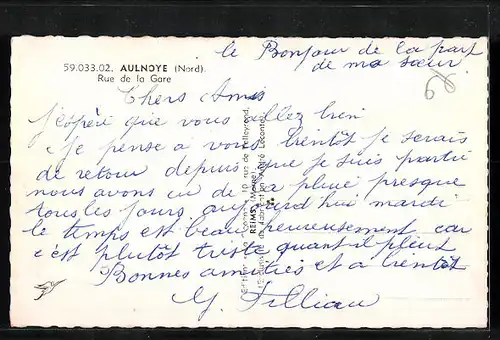 le Bonjour de la part
de ma sœur
59.033.02. AULNOYE (Nord).
Rue de la Gare
Chers Amis
j'espère que vous allez bien
Je pense a vous bientôt je serais
de retour depuis que je suis partie
nous avons eu de la pluie presque
tous les jours aujourd hui mardi
le temps est beau heureusement car
c'est plutôt triste quant il pleut
Bonnes amitiés et a bientôt
REIMS (Marne)